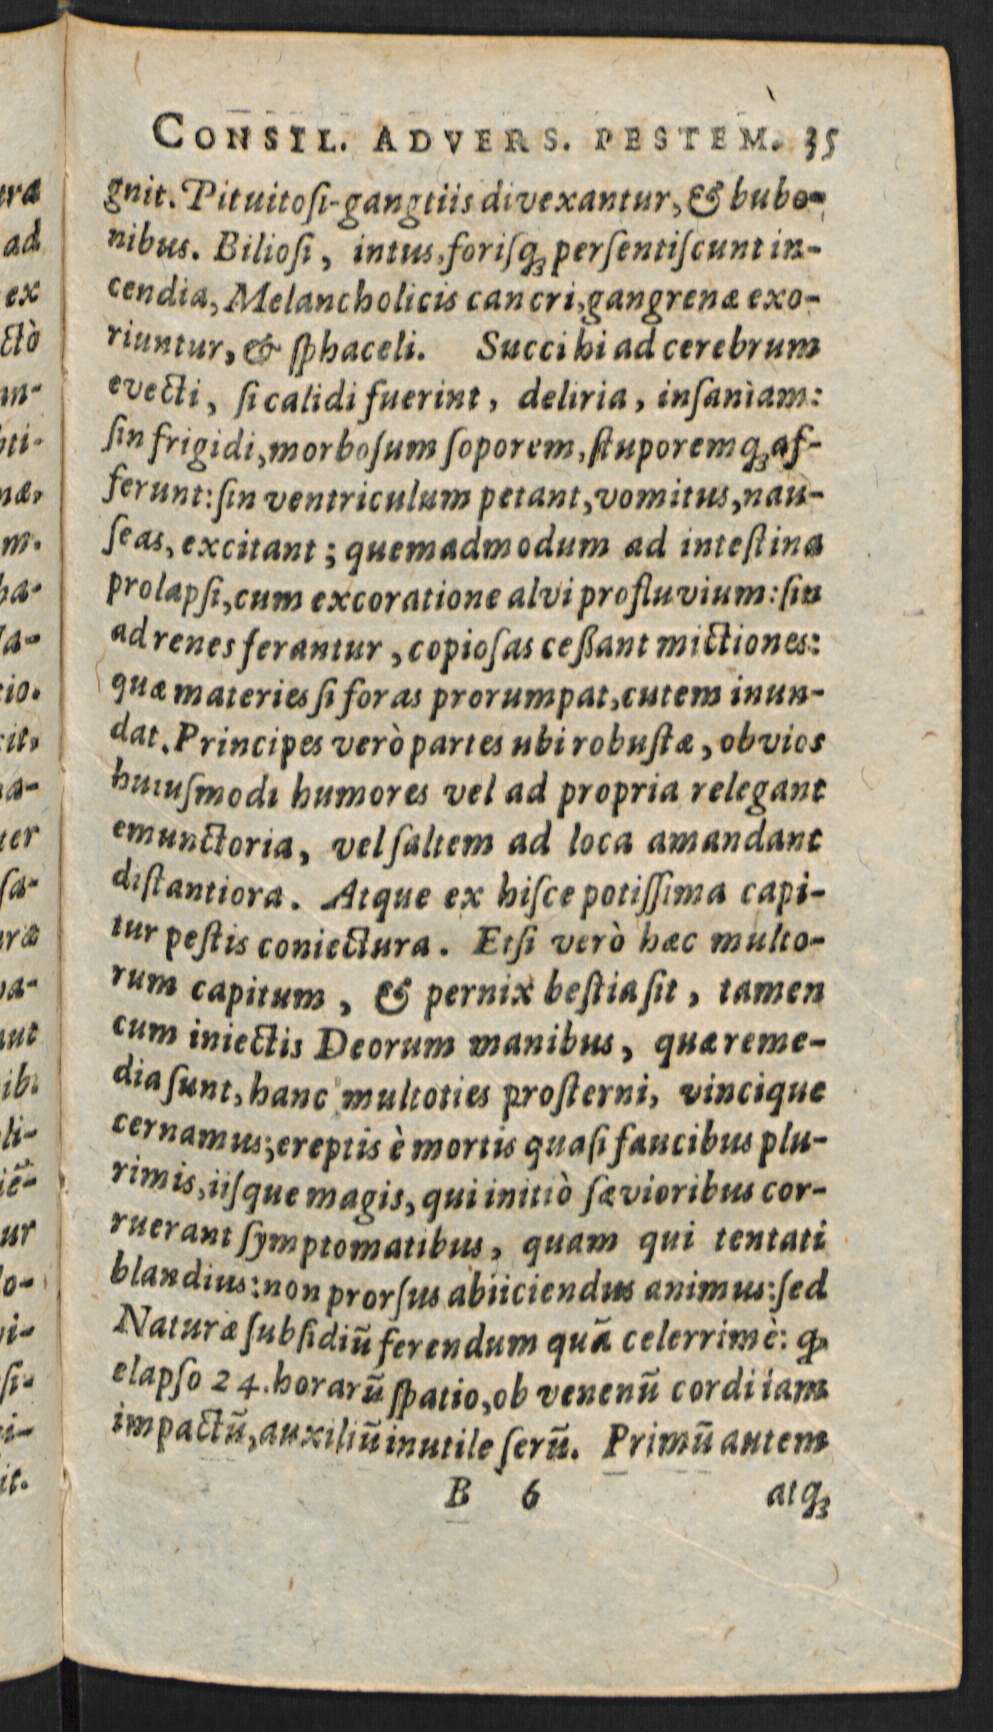 CONSIL. ADVERS. PESTEM. 35
gnit. Pituitoſi-gangtiis divexantur, & bubo-
nibus. Bilioſi, intus, foriſq́ꝫ perſentiſcunt in-
cendia, Melancholicis cancri, gangrenæ exo-
riuntur, & ſphaceli. Succi hi ad cerebrum
evecti, ſi calidi fuerint, deliria, inſaniam:
ſin frigidi, morboſum ſoporem, ſtuporemqꝫ af-
ferunt: ſin ventriculum petant, vomitus, nau-
ſeas, excitant; quemadmodum ad inteſtina
prolapſi, cum excoratione alvi profluvium: ſin
ad renes ferantur, copioſas ceßant mictiones:
quæ materies ſi foras prorumpat, cutem inun-
dat. Principes verò partes ubi robuſtæ, obvios
huiuſmodi humores vel ad propria relegant
emunctoria, vel ſaltem ad loca amandant
diſtantiora. Atque ex hiſce potiſſima capi-
tur peſtis coniectura. Etſi verò hæc multo-
rum capitum, & pernix beſtia ſit, tamen
cum iniectis Deorum manibus, quæ reme-
dia ſunt, hanc multoties proſterni, vincique
cernamus; ereptis è mortis quaſi faucibus plu-
rimis, iiſque magis, qui initiò ſævioribus cor-
ruerant ſymptomatibus, quam qui tentati
blandius: non prorſus abiiciendus animus: ſed
Naturæ ſubſidiū ferendum quā celerrimè: ꝙ
elapſo 24. horarū ſpatio, ob venenū cordi iam
impactū, auxiliū inutile ſerū. Primū autem
B 6 atqꝫ
uræ
ad
ex
ctò
m.
tio.
cit,
uer
ſa-
aut
ur
it.